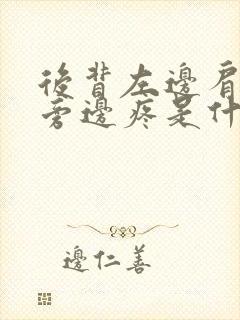 後背左邊肩
旁邊疼是什
邊仁善